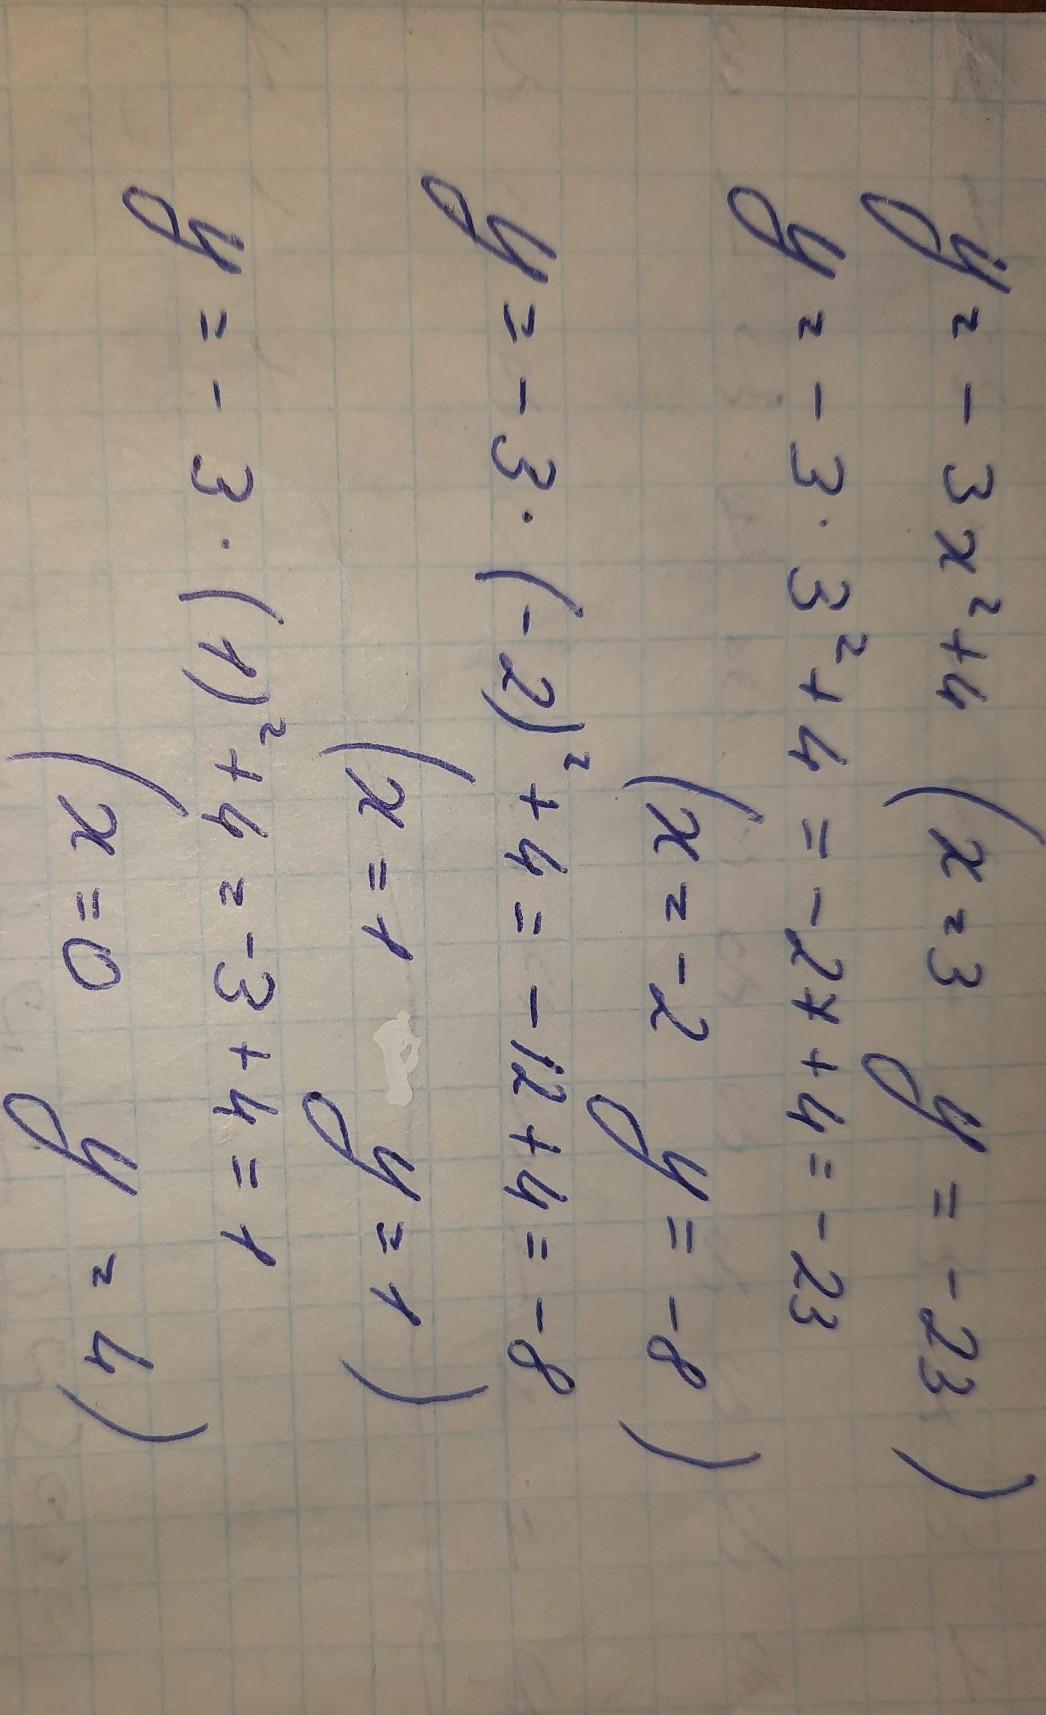 y = - 3x² + 4 (x = 3 y = - 23)
y = - 3 · 3² + 4 = - 27 + 4 = - 23
(x = - 2 y = - 8)
y = - 3 · (- 2)² + 4 = - 12 + 4 = - 8
(x = 1 y = 1)
y = - 3 · (1)² + 4 = - 3 + 4 = 1
(x = 0 y = 4)